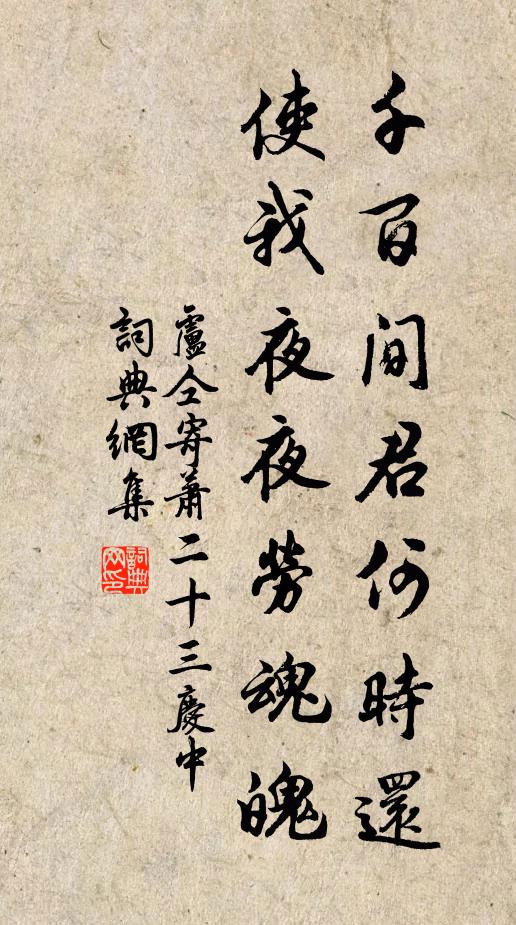 千百間君何時還
使我夜夜勞魂魄
盧仝寄蕭二十三慶中
詞典網集
詞典網印